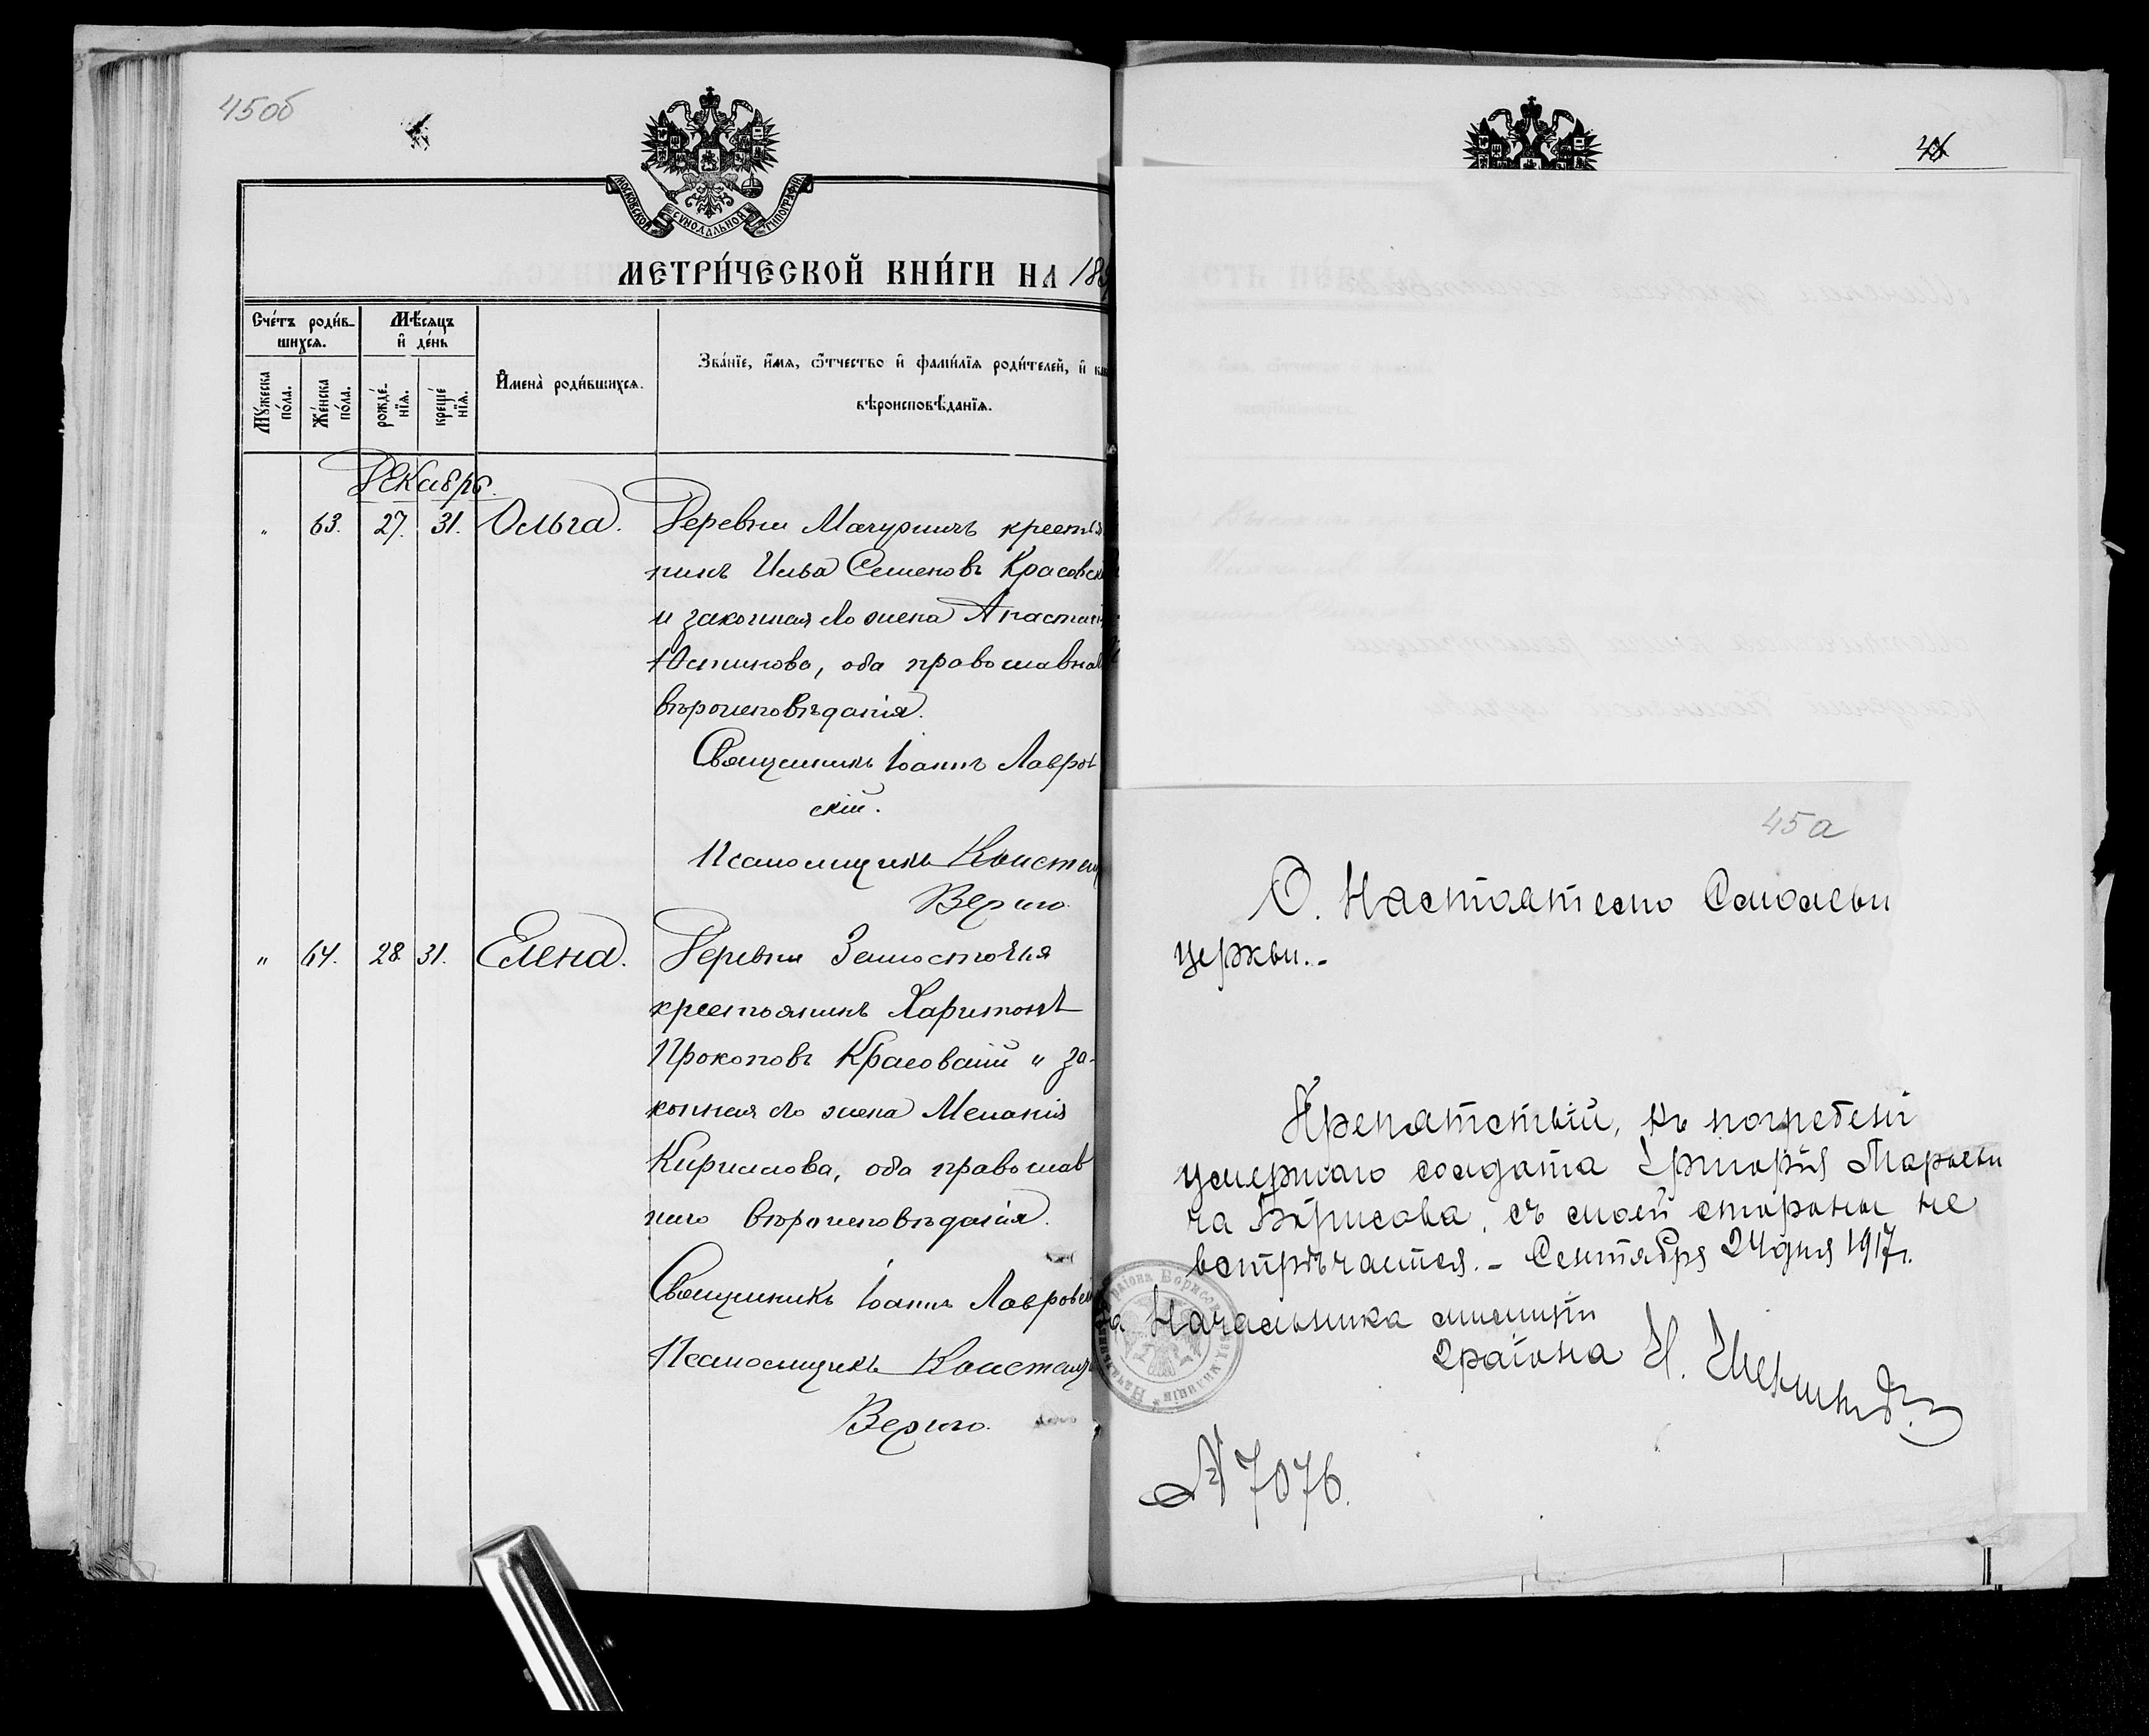 45об
МОСКОВСКОЙ СѴНОДАЛЬНОЙ ТИПОГРАФІИ.
МЕТРИ́ЧЕСКОЙ КНИ́ГИ НА 189
Сче́тъ роди́в-
шихсѧ.
Мѣ́сѧцъ
и҆ де́нь
И҆мена̀ роди́вшихсѧ.
Зва́нїе, и҆́мѧ, ѻ҆́тчество и҆ фами́лїѧ роди́телей, и҆
вѣроисповѣ́данїѧ.
Мꙋ́жеска
по́ла.
Же́нска
по́ла.
рожде́-
нїѧ.
креще́
нїѧ.
Декабрь.
" 63. 27. 31. Ольга. Деревни Мачужичъ крестья
нинъ Илья Семеновъ Красовскій
и законная его жена Анастасія
Юстинова, оба православнаго
вѣроисповѣданія.
Священникъ Іоаннъ Лавров
скій.
Псаломщикъ Констан
Верного
" 64. 28. 31. Елена. Деревни Замосточья
крестьянинъ Харитонъ
Прокоповъ Красовскій и за-
конная его жена Меланія
Кириллова, оба православ
наго вѣроисповѣданія.
Священникъ Іоаннъ Лавровскій
Псаломщикъ Констан
46
45а
О. Настоятелю
церкви.-
Препятствій, къ погребенію
умершаго солдата Григорія
Борисова, съ моей стороны не
встрѣчается. - Сентября 24 дня 1917г.
За Начальника милиціи
2 раіона
№ 7076.